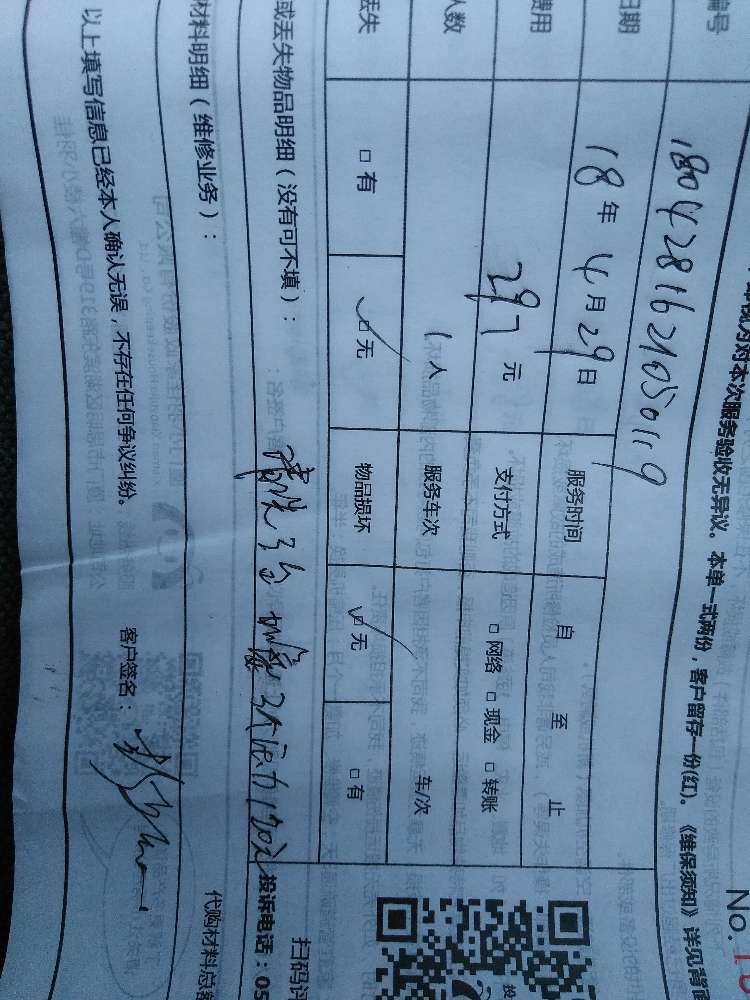 No. 1
认为对本次服务验收无异议。本单一式两份，客户留存一份(红)。《维保须知》详见背面
编号 180428162105 0119
日期 18年4月29日 服务时间 自 至 止
费用 297元 支付方式 □网络 □现金 □转账
人数 1人 服务车次 车/次
丢失 □有 □无 物品损坏 □无 □有
或丢失物品明细（没有可不填）： 清洗3台 加氟3个压力170元 投诉电话：05
扫码评
材料明细（维修业务）： 代购材料总
以上填写信息已经本人确认无误，不存在任何争议纠纷。 客户签名：